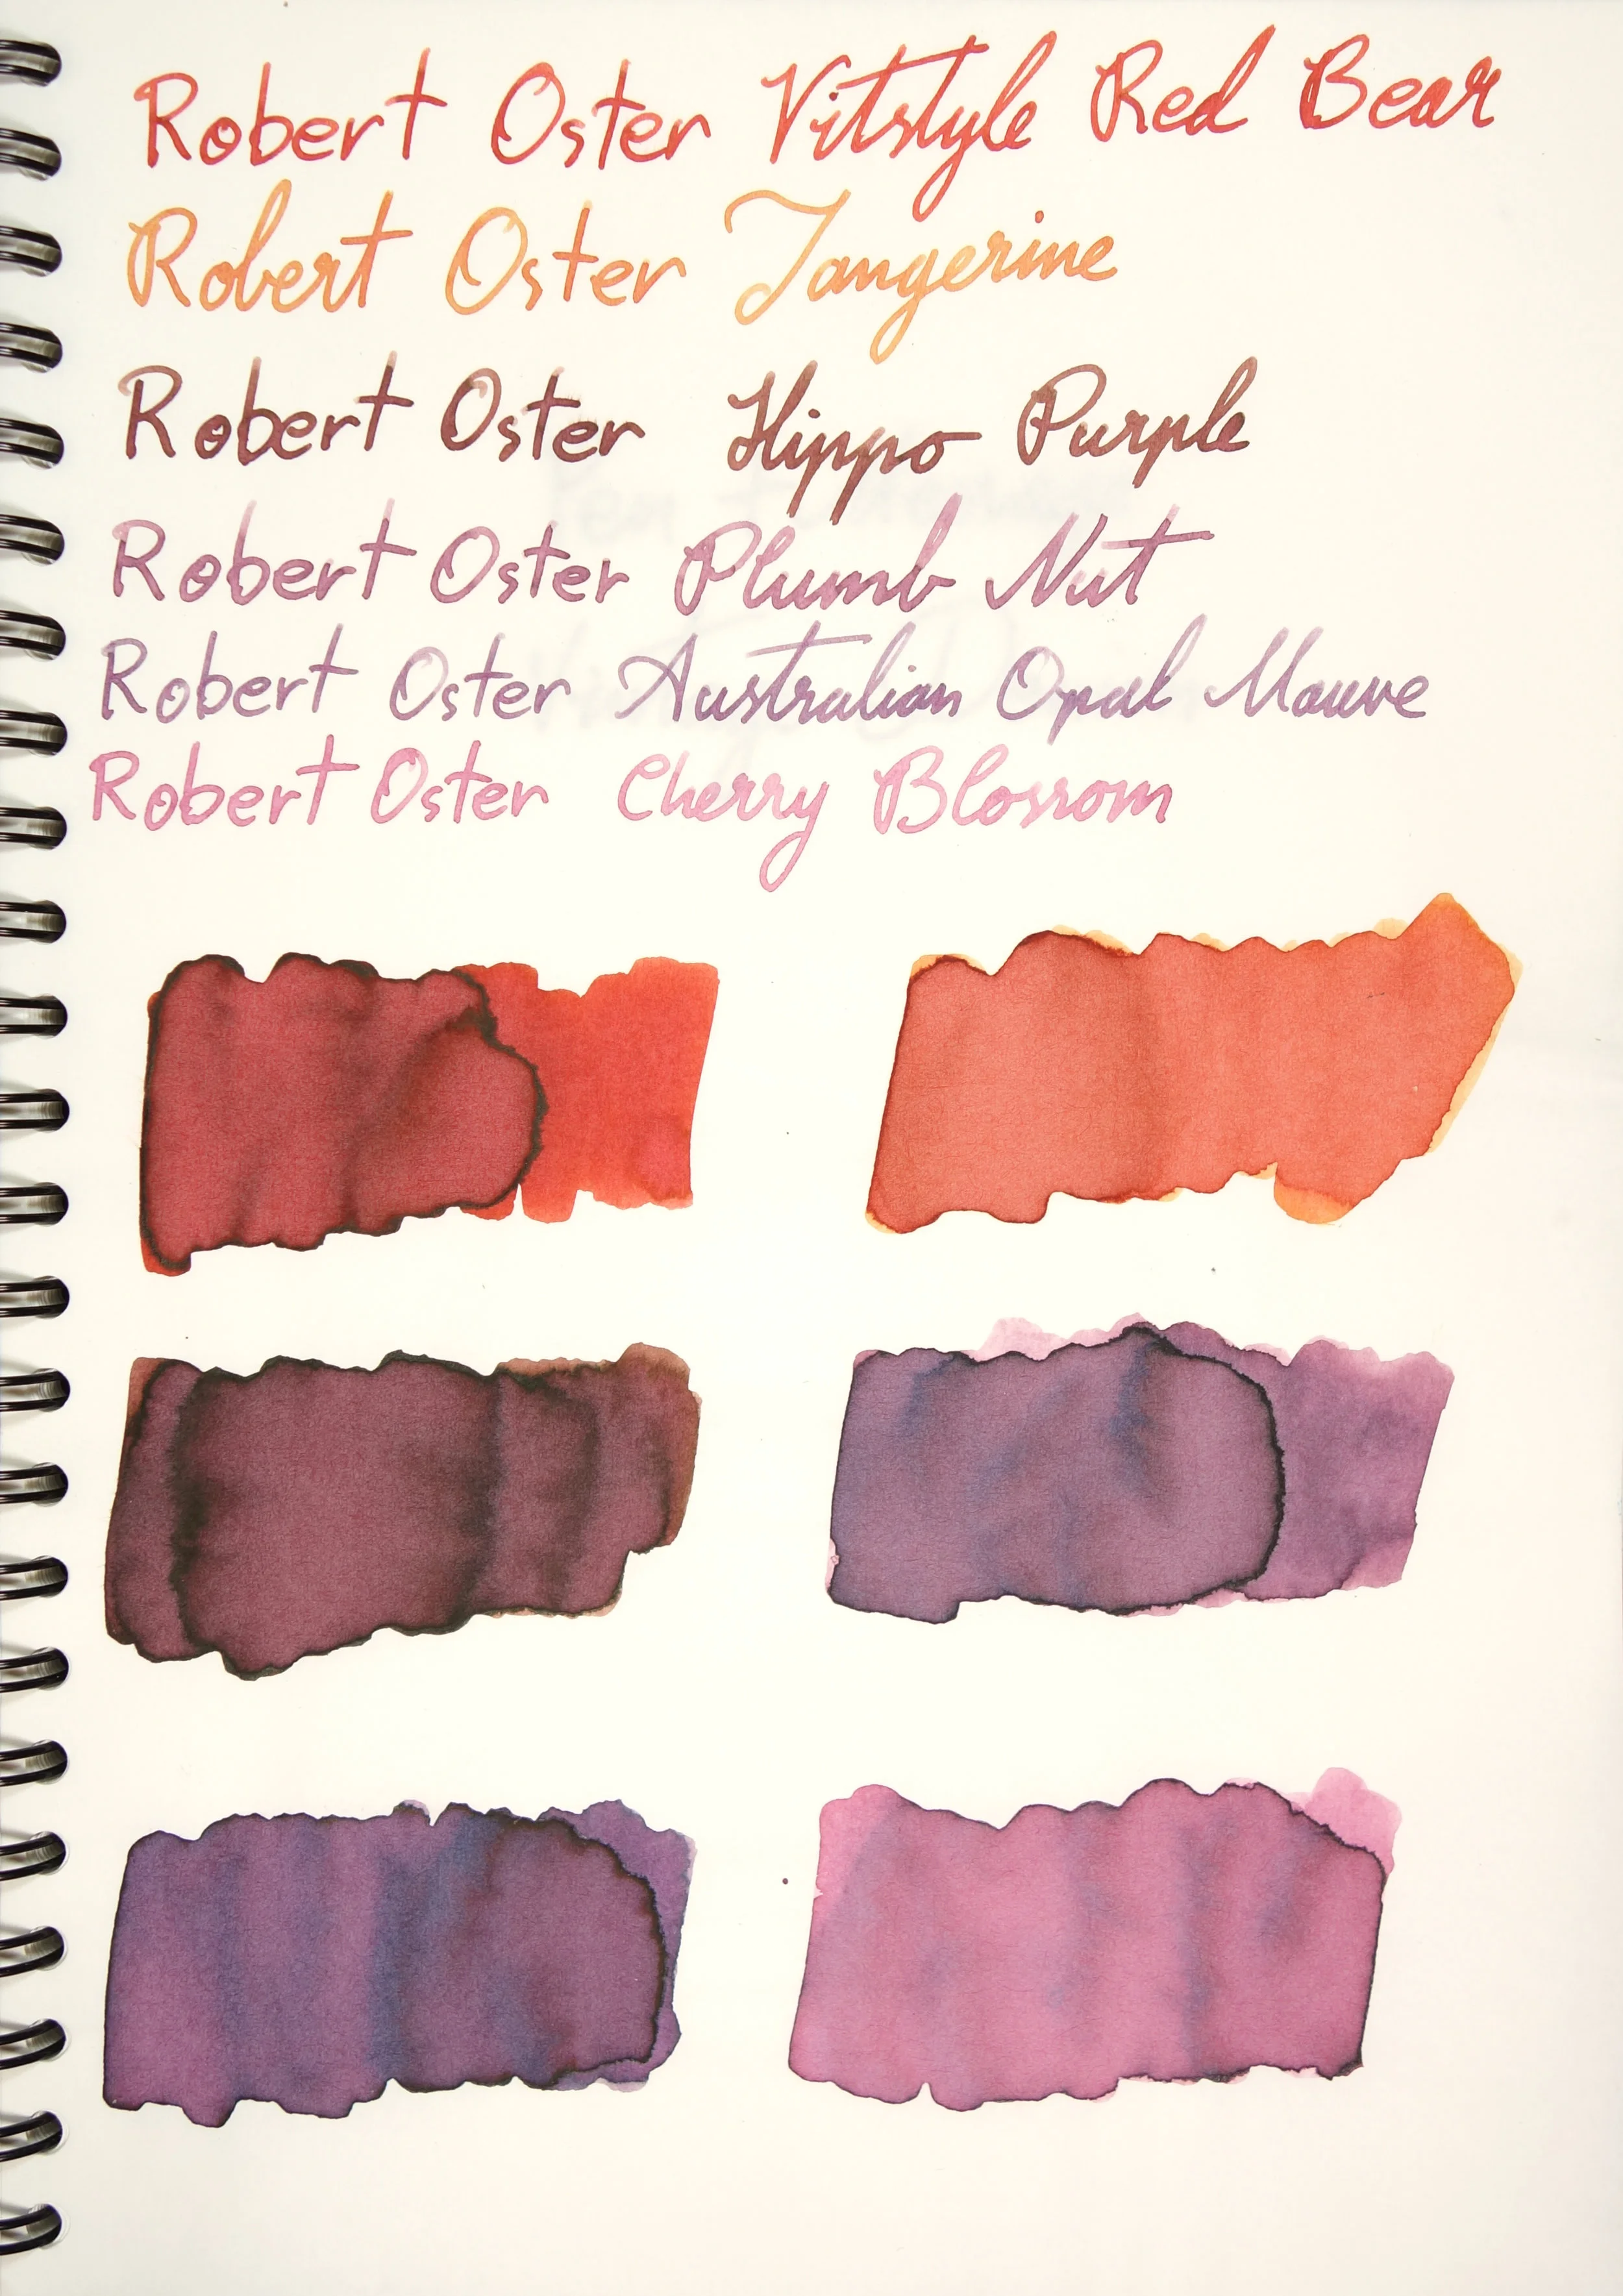 Robert Oster Vitstyle Red Bear
Robert Oster Tangerine
Robert Oster Hippo Purple
Robert Oster Plumb Nut
Robert Oster Australian Opal Mauve
Robert Oster Cherry Blossom